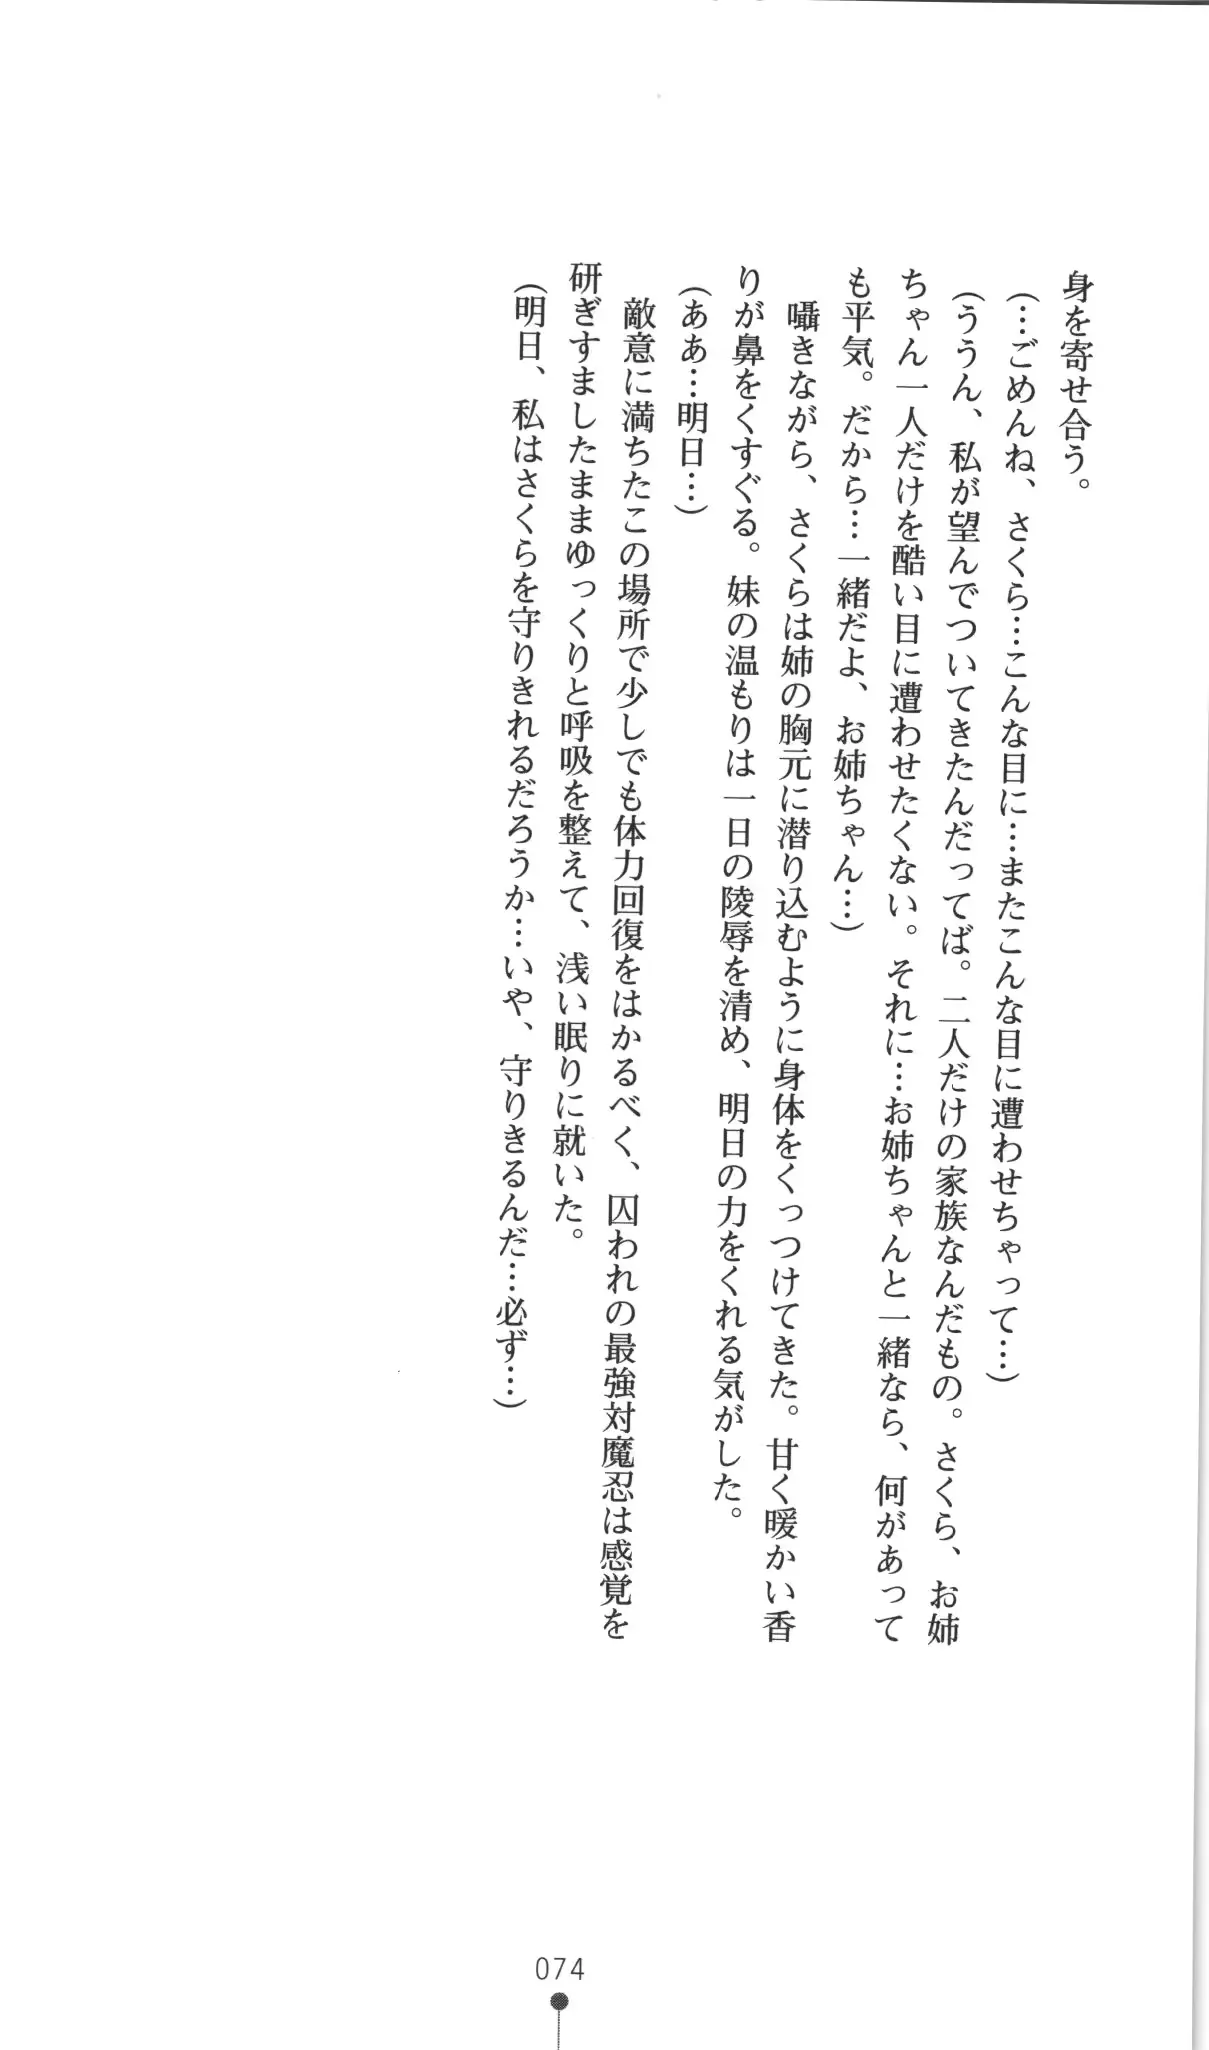 身を寄せ合う。
（…ごめんね、さくら…こんな目に…またこんな目に遭わせちゃって…）
（ううん、私が望んでついてきたんだってば。二人だけの家族なんだもの。さくら、お姉
ちゃん一人だけを酷い目に遭わせたくない。それに…お姉ちゃんと一緒なら、何があって
も平気。だから…一緒だよ、お姉ちゃん…）
　囁きながら、さくらは姉の胸元に潜り込むように身体をくっつけてきた。甘く暖かい香
りが鼻をくすぐる。妹の温もりは一日の陵辱を清め、明日の力をくれる気がした。
（ああ…明日…）
　敵意に満ちたこの場所で少しでも体力回復をはかるべく、囚われの最強対魔忍は感覚を
研ぎすましたままゆっくりと呼吸を整えて、浅い眠りに就いた。
（明日、私はさくらを守りきれるだろうか…いや、守りきるんだ…必ず…）
074